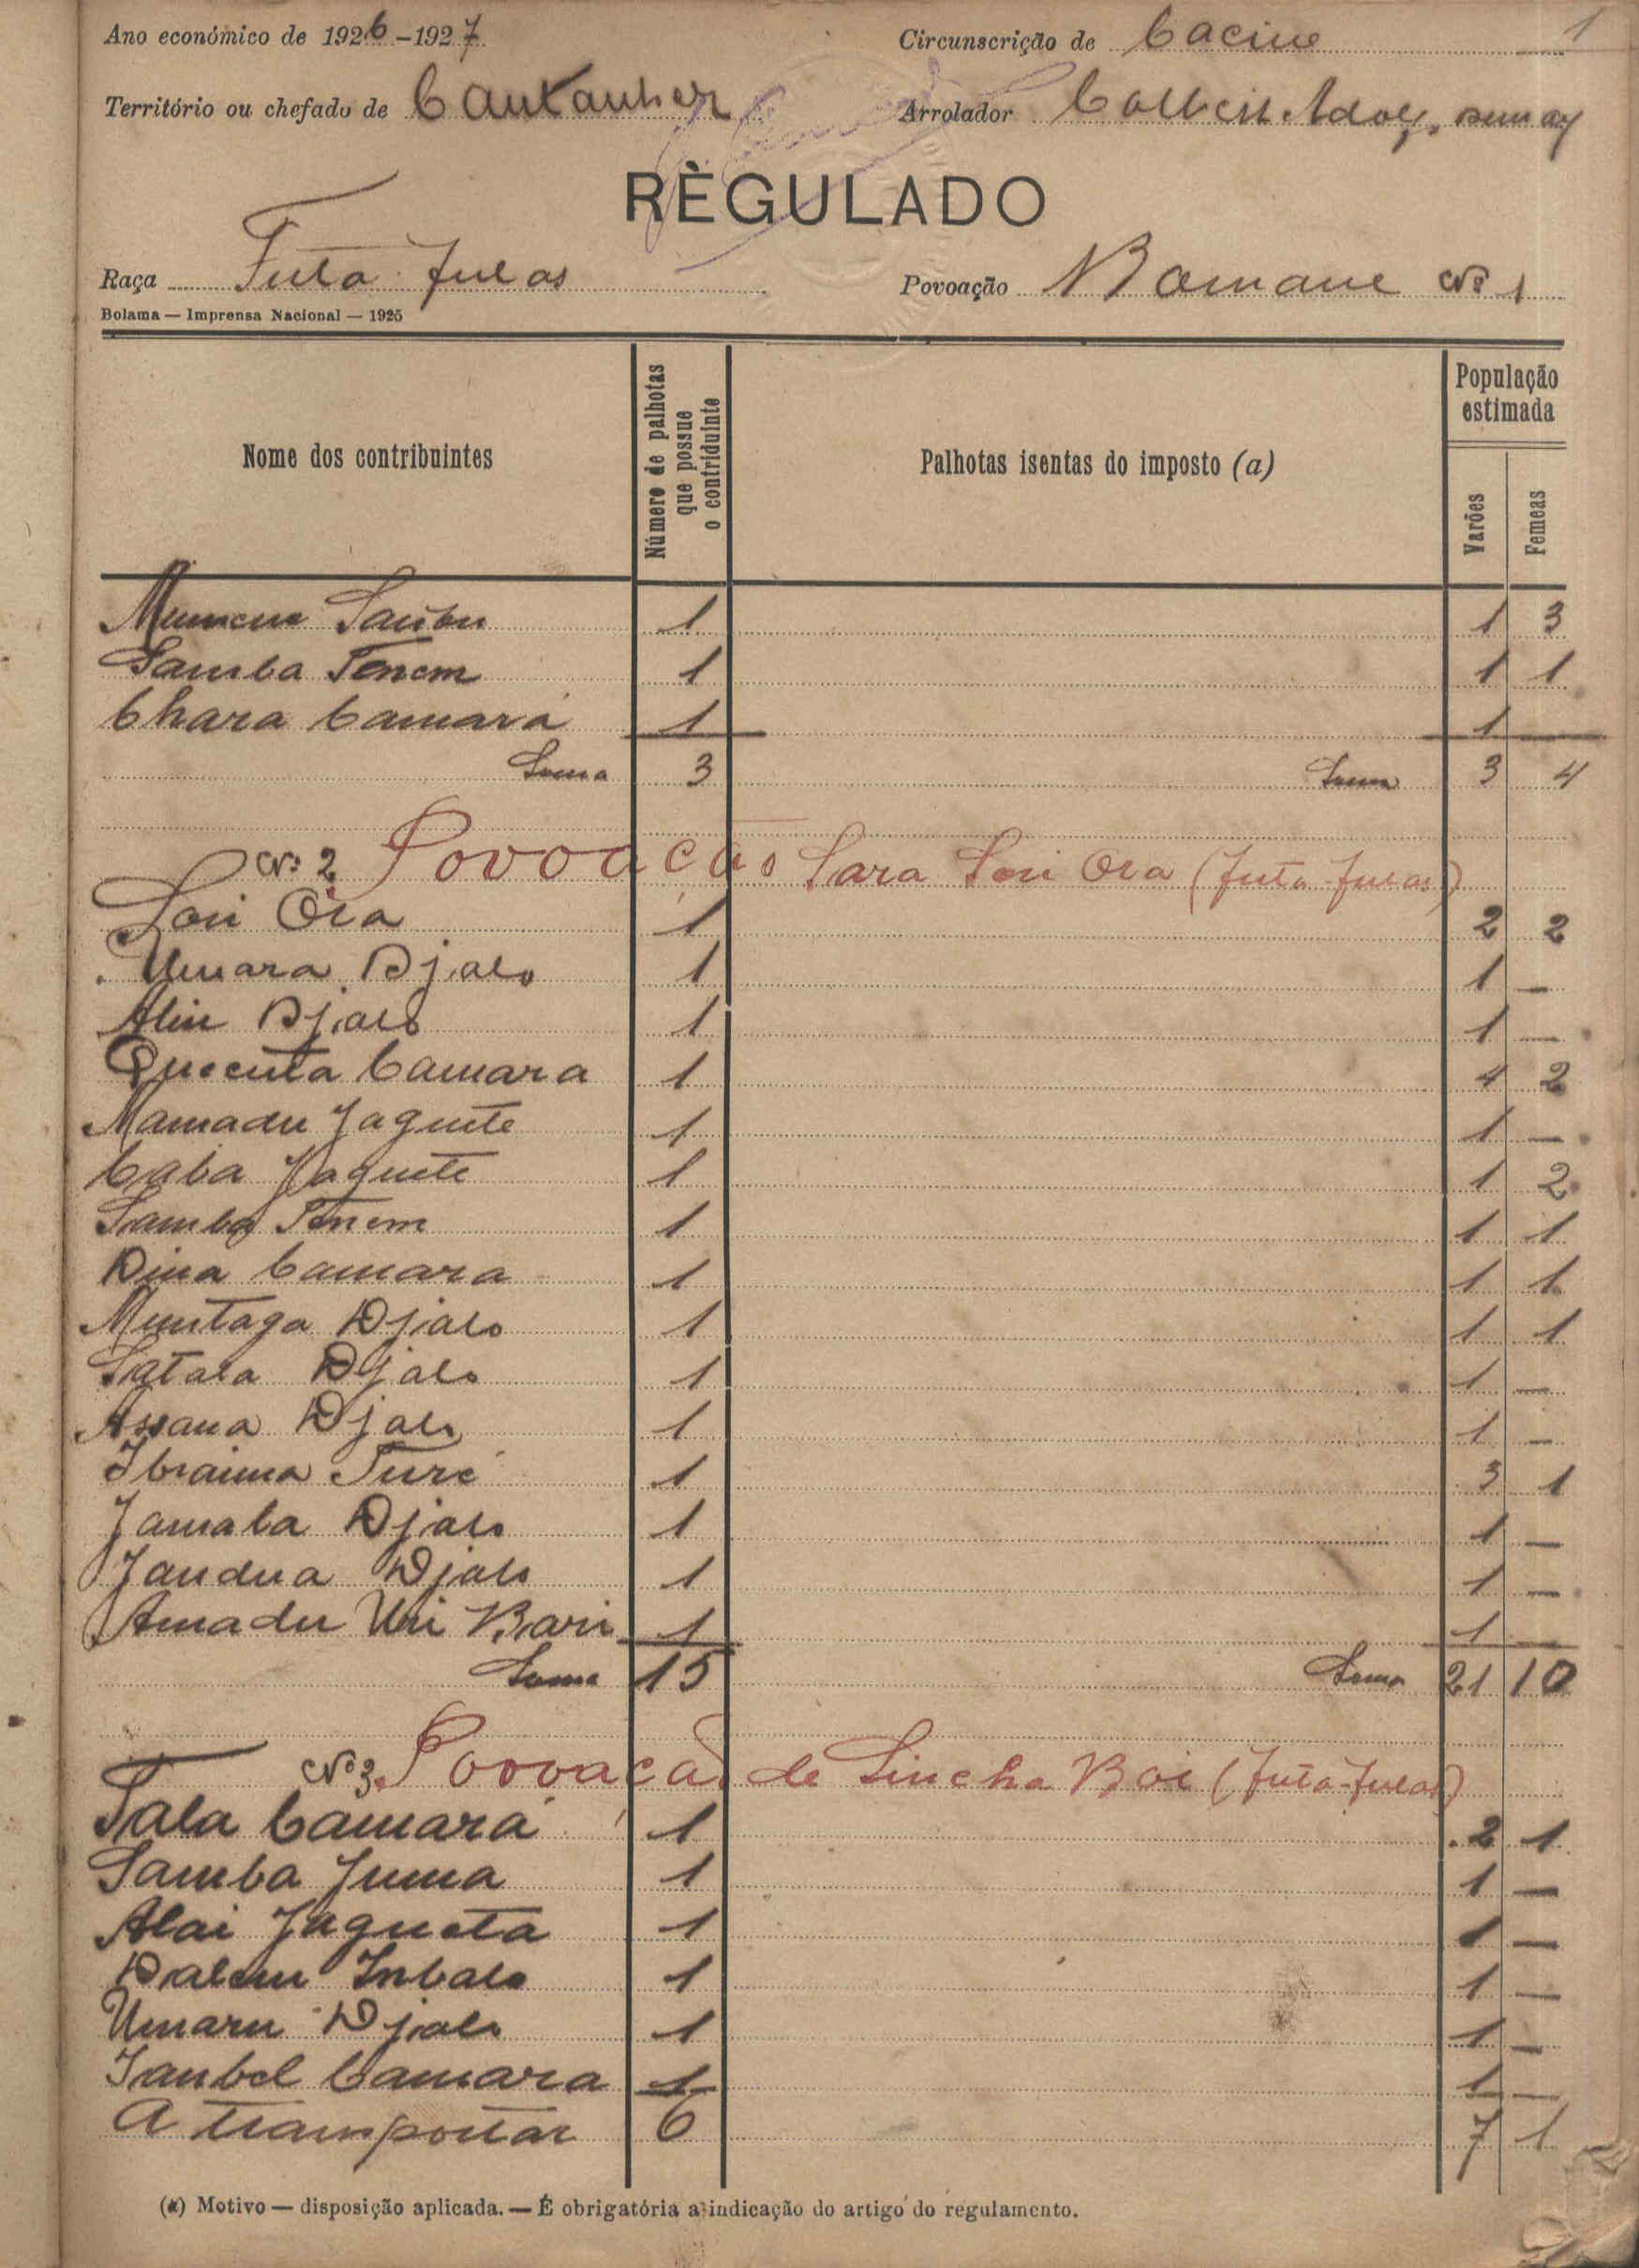 Ano económico de 1926-1927 Circunscrição de Cacine 1
Território ou chefado de Cantanhez Arrolador
RÈGULADO
Raça Futa-fulas Povoação Bamane Nº 1
Bolama — Imprensa Nacional — 1925
Nome dos contribuintes
Número de palhotas que possue o contriduinte
Palhotas isentas do imposto (a)
População estimada
Varões
Femeas
1 1 3
Samba Tenem 1 1 1
Chara Camará 1 1
Soma 3 Soma 3 4
Nº 2 Povoação Sara Lori Ora (futa-fulas)
Lori Ora 1 2 2
Umara Djalo 1 1 —
Aliu Djalo 1 1 —
Quecuta Camara 1 4 2
Mamadu Jaguite 1 1 —
Caba Jaguite 1 1 2
Samba Tenem 1 1 1
Dina Camara 1 1 1
Muntaga Djalo 1 1 1
Satala Djalo 1 1 —
Assana Djalo 1 1 —
Ibraima Turé 1 3 1
Jamala Djalo 1 1 —
Jandua Djalo 1 1 —
Amadu Uri Bari 1 1 —
Soma 15 Soma 21 10
Nº 3 Povoação de Sincha Boi (futa-fulas)
Tala Camará 1 2 1
Samba Juma 1 1 —
Alai Jagueta 1 1 —
Inbalo 1 1 —
Umaru Djalo 1 1 —
Camara 1 1 —
A transportar 6 7 1
(a) Motivo — disposição aplicada. — É obrigatória a indicação do artigo do regulamento.